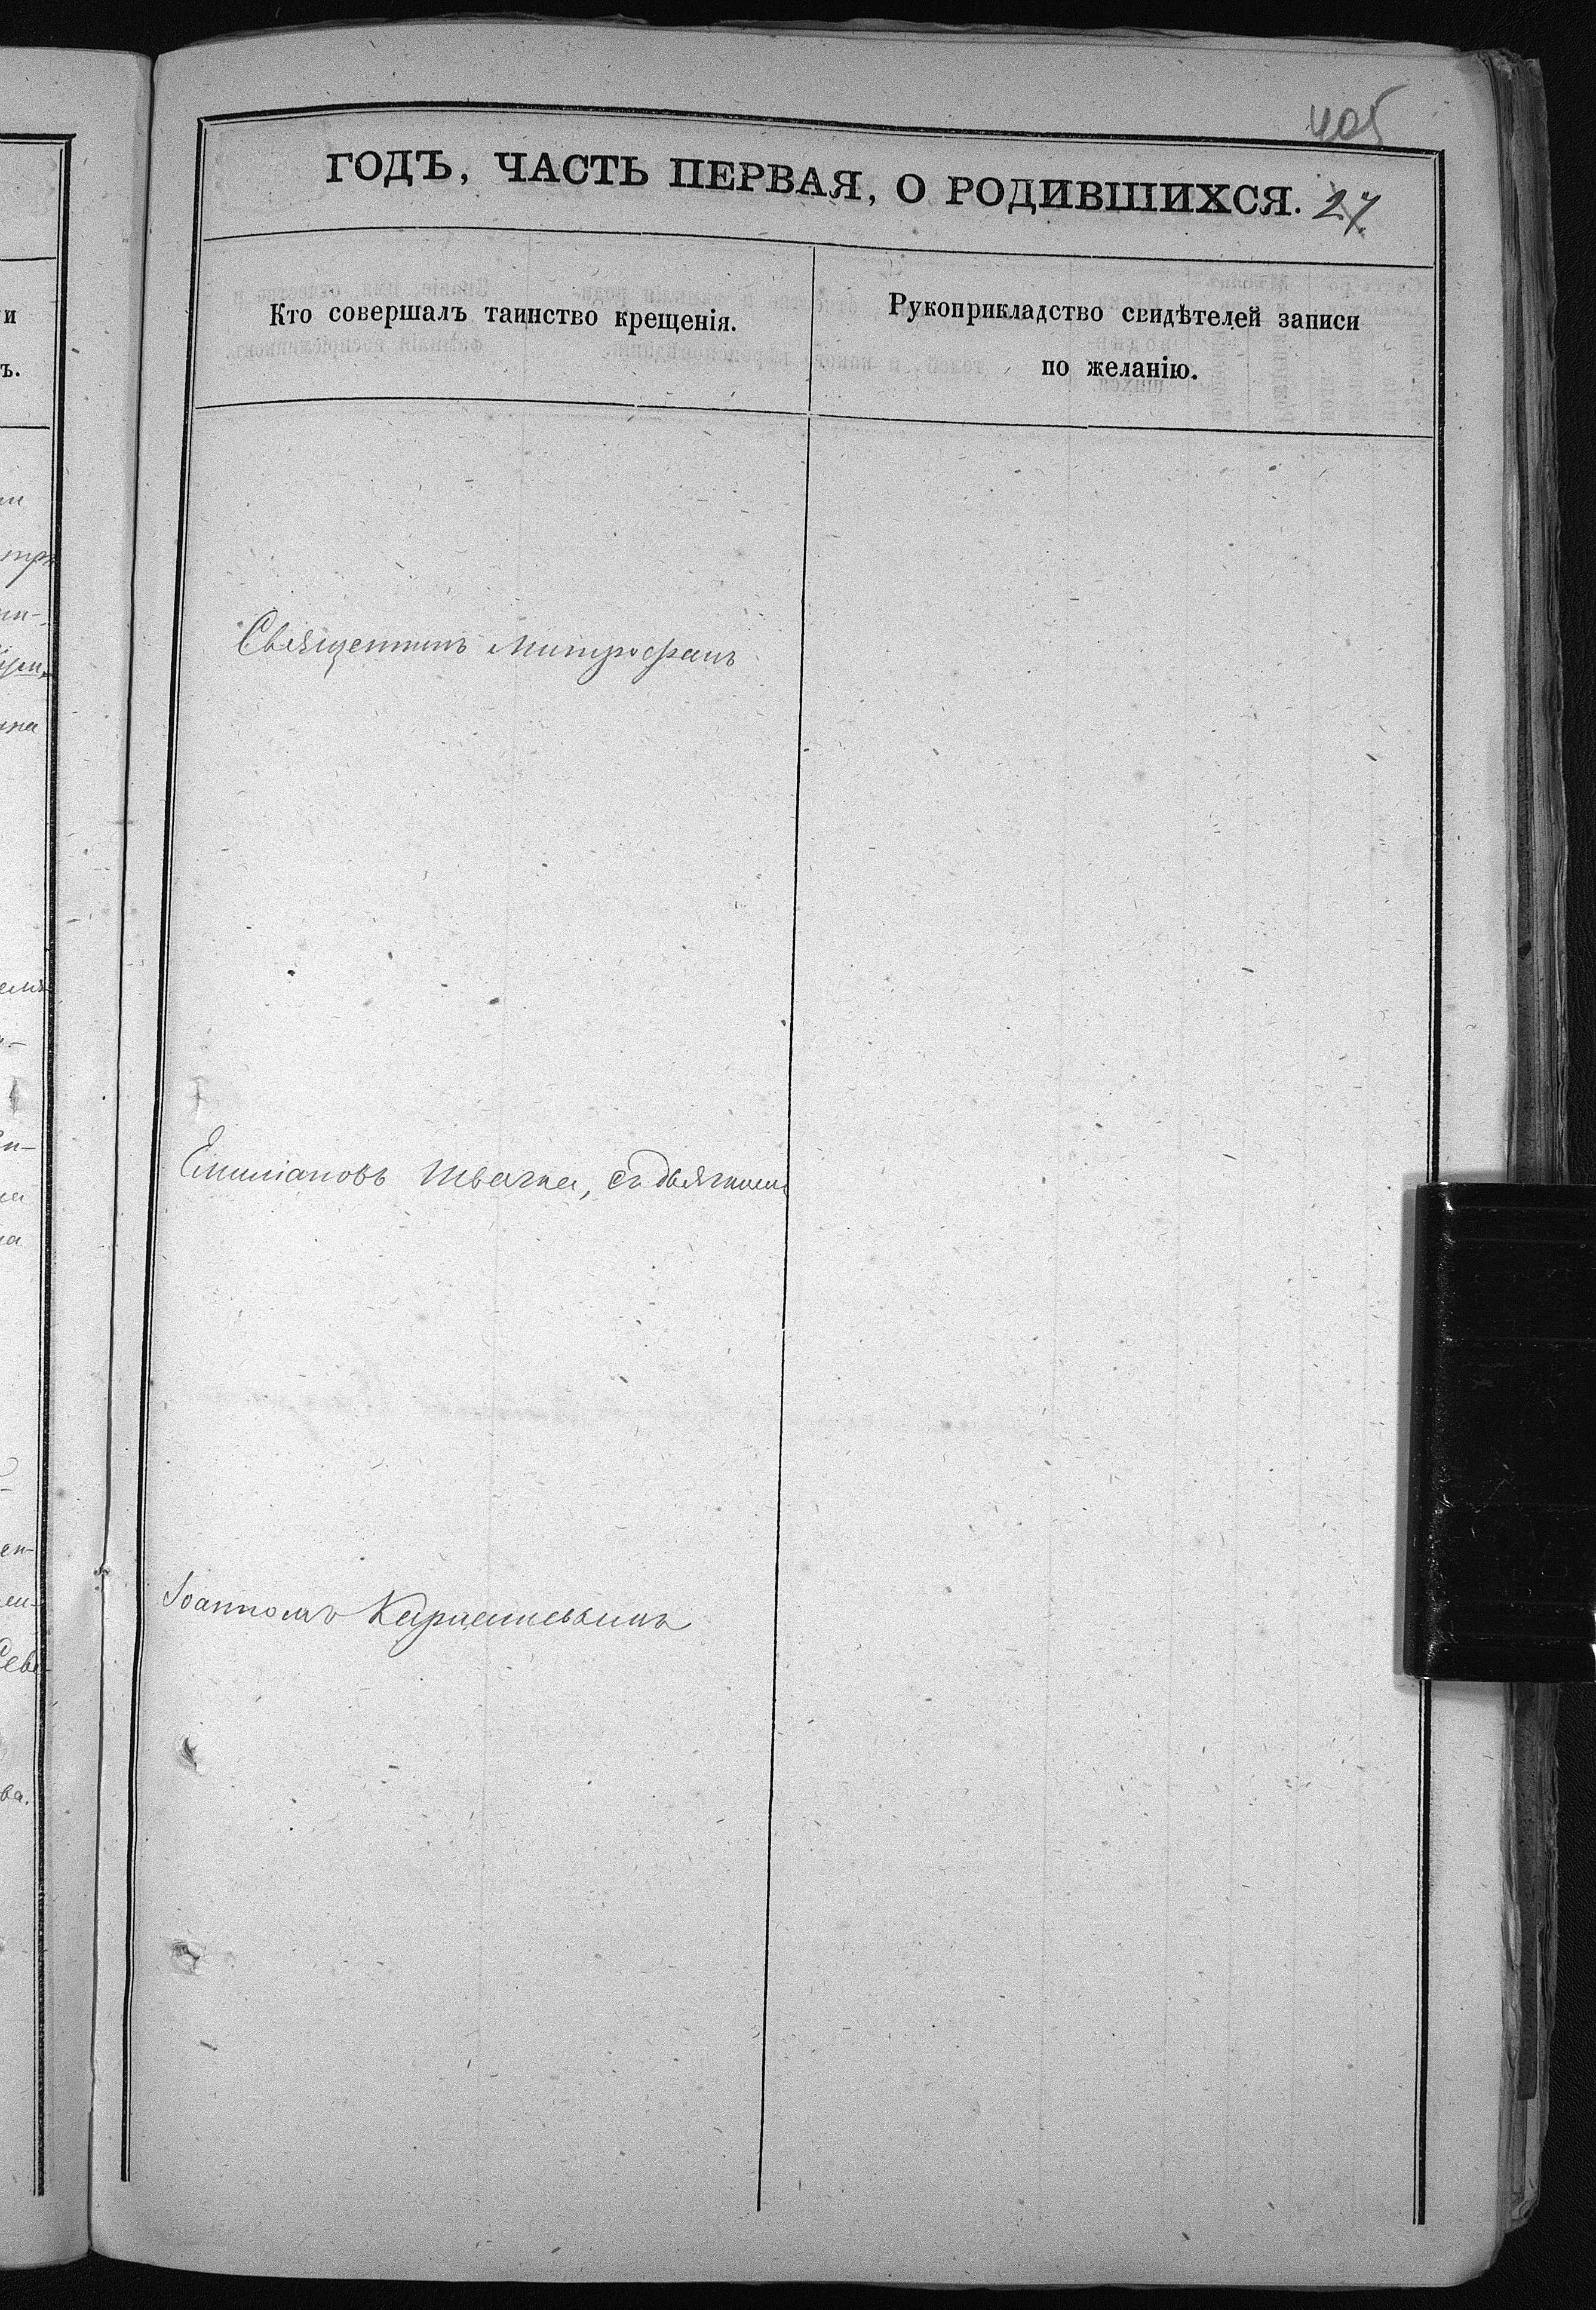 405
ГОДЪ, ЧАСТЬ ПЕРВАЯ, О РОДИВШИХСЯ. 27.
Кто совершалъ таинство крещенія.
Рукоприкладство свидѣтелей записи
по желанію.
Священникъ Митрофанъ
Емиліановъ Швачка, съ дьячкомъ
Іоанномъ Карпинскимъ